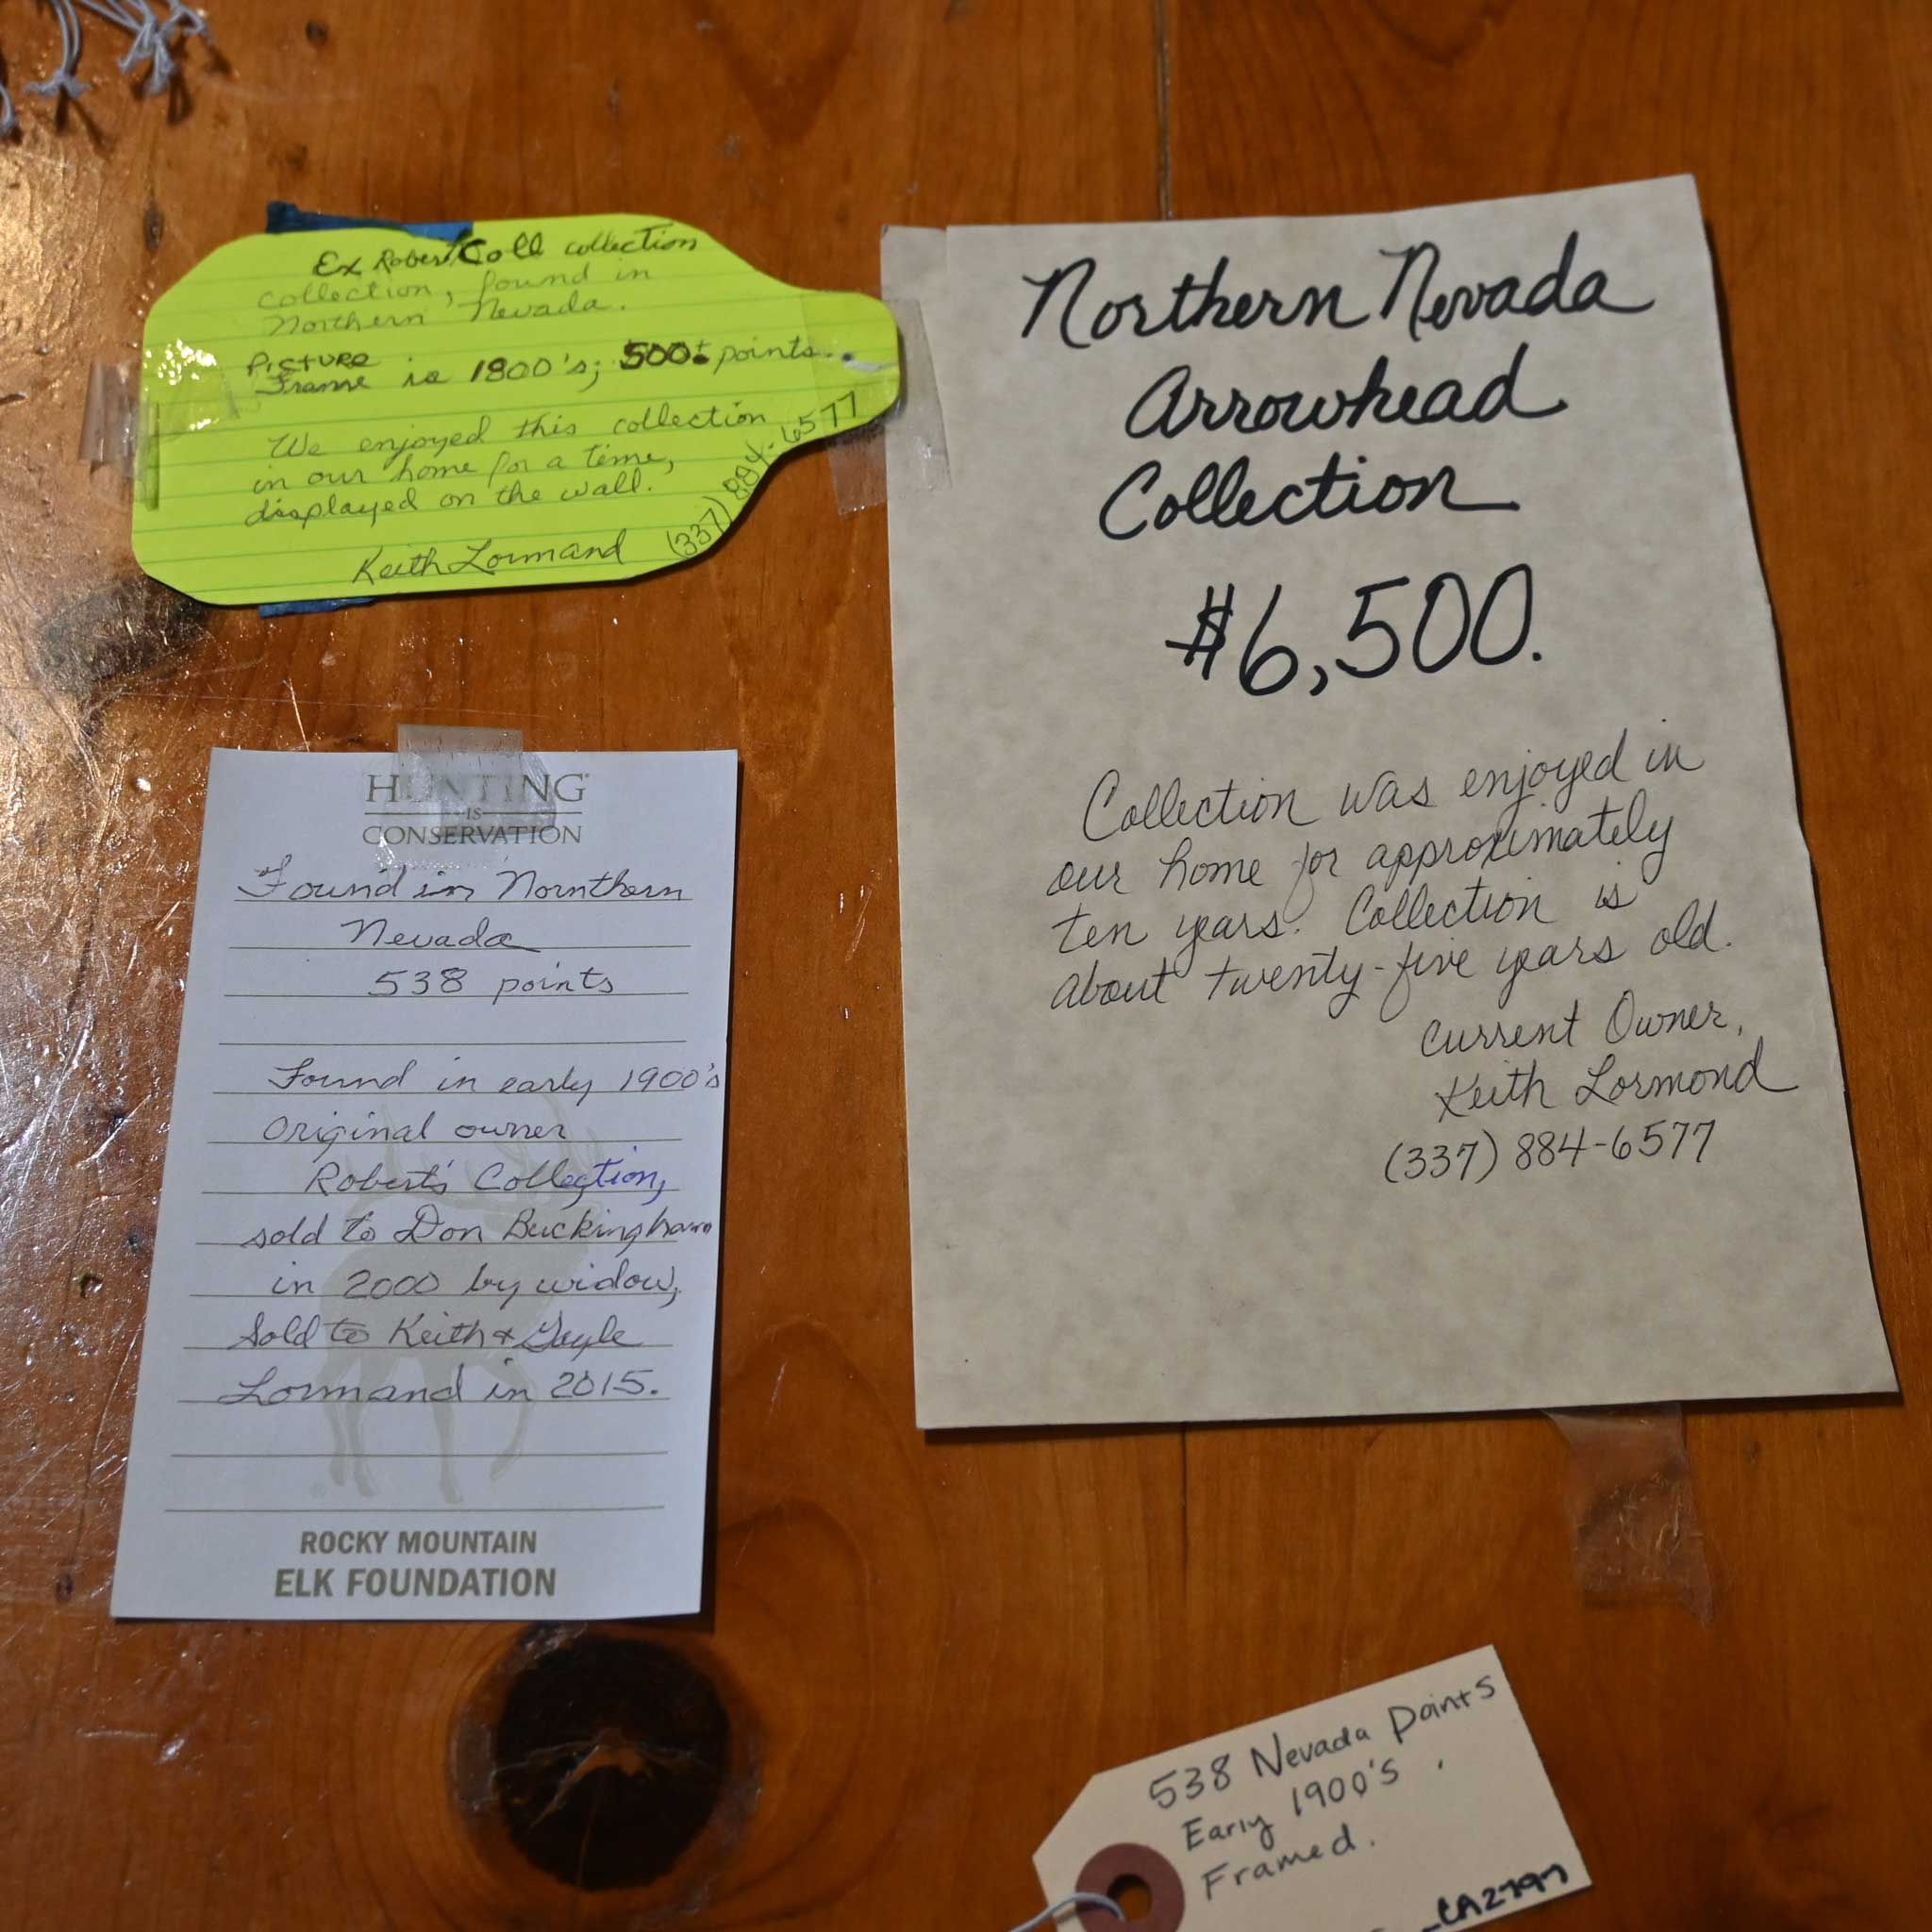 Ex Robert Coll collection
collection, found in
Northern Nevada.
Picture
Frame is 1800's; 500± points.
We enjoyed this collection
in our home for a time,
displayed on the wall.
Keith Lormand
(337) 884-6577
Northern Nevada
Arrowhead
Collection
$6,500.
Collection was enjoyed in
our home for approximately
ten years. Collection is
about twenty-five years old.
Current Owner,
Keith Lormond
(337) 884-6577
HUNTING
IS
CONSERVATION
Found in Nornthern
Nevada
538 points
Found in early 1900's
Original owner
Robert's Collection,
sold to Don Buckingham
in 2000 by widow,
Sold to Keith & Gayle
Lormand in 2015.
ROCKY MOUNTAIN
ELK FOUNDATION
538 Nevada Points
Early 1900's.
Framed.